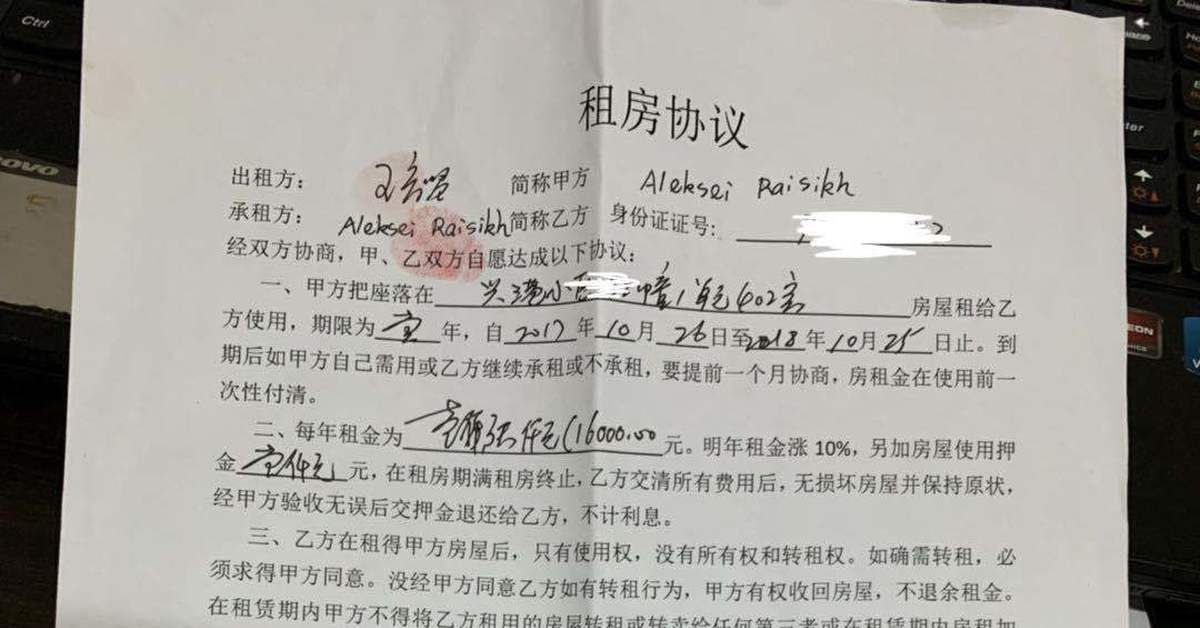 租房协议
出租方： 简称甲方 Aleksei Raisikh
承租方：Aleksei Raisikh 简称乙方 身份证证号：
经双方协商，甲、乙双方自愿达成以下协议：
一、甲方把座落在 兴港小区 幢1单元402室 房屋租给乙
方使用，期限为 壹 年，自 2017 年 10 月 26 日至 2018 年 10 月 25 日止。到
期后如甲方自己需用或乙方继续承租或不承租，要提前一个月协商，房租金在使用前一
次性付清。
二、每年租金为 壹万陆仟元(16000.00 元。明年租金涨 10%，另加房屋使用押
金 壹仟元 元，在租房期满租房终止，乙方交清所有费用后，无损坏房屋并保持原状，
经甲方验收无误后交押金退还给乙方，不计利息。
三、乙方在租得甲方房屋后，只有使用权，没有所有权和转租权。如确需转租，必
须求得甲方同意。没经甲方同意乙方如有转租行为，甲方有权收回房屋，不退余租金。
在租赁期内甲方不得将乙方租用的房屋转租或转卖给任何第三者或在租赁期内房租加
Ctrl